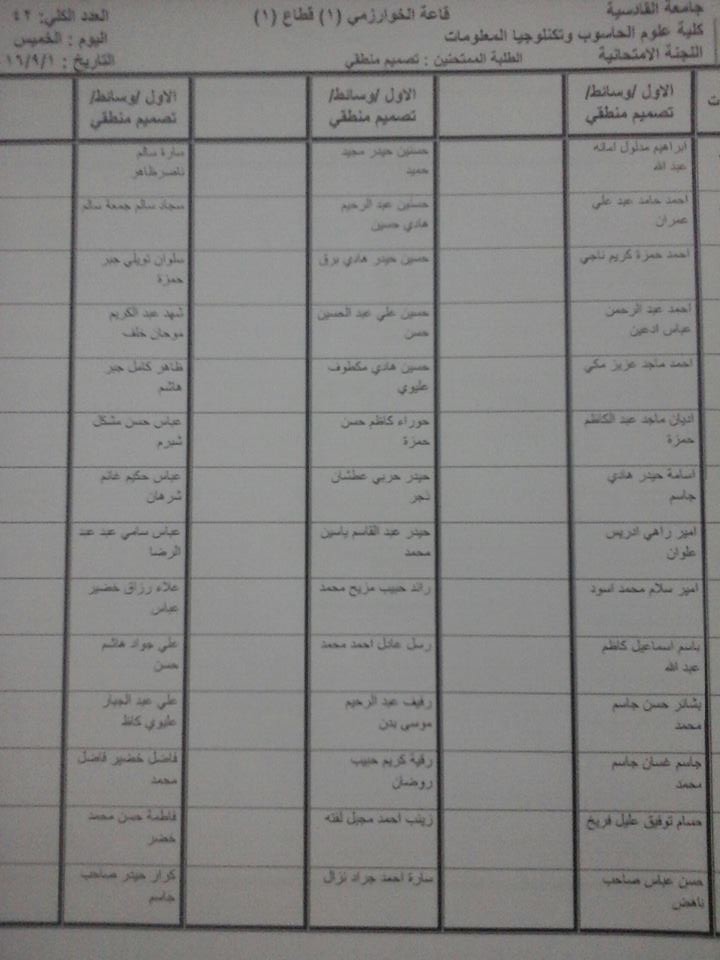 جامعة القادسية
كلية علوم الحاسوب وتكنلوجيا المعلومات
اللجنة الامتحانية
قاعة الخوارزمي (١) قطاع (١)
الطلبة الممتحنين : تصميم منطقي
العدد الكلي: ٤٢
اليوم : الخميس
التاريخ : ١٦/٩/١
ت
الاول /وسائط/
تصميم منطقي
ابراهيم مدلول امانه
عبد الله
احمد حامد عبد علي
عمران
احمد حمزة كريم ناجي
احمد عبد الرحمن
عباس ادعين
احمد ماجد عزيز مكي
اديان ماجد عبد الكاظم
حمزة
اسامة حيدر هادي
جاسم
امير راهي ادريس
علوان
امير سلام محمد اسود
باسم اسماعيل كاظم
عبد الله
بشائر حسن جاسم
محمد
جاسم غسان جاسم
محمد
حسام توفيق عليل فريخ
حسن عباس صاحب
ناهض
الاول /وسائط/
تصميم منطقي
حسنين حيدر مجيد
حميد
حسنين عبد الرحيم
هادي حسين
حسين حيدر هادي برق
حسين علي عبد الحسين
حسن
حسين هادي مكطوف
عليوي
حوراء كاظم حسن
حمزة
حيدر حربي عطشان
نجر
حيدر عبد القاسم ياسين
محمد
رائد حبيب مزيح محمد
رسل عادل احمد محمد
رفيف عبد الرحيم
موسى بدن
رقية كريم حبيب
روضان
زينب احمد مجبل لفته
سارة احمد جراد نزال
الاول /وسائط/
تصميم منطقي
سارة سالم
ناصرظاهر
سجاد سالم جمعة سالم
سلوان نويلي جبر
حمزة
شهد عبد الكريم
موحان خلف
ظاهر كامل جبر
هاشم
عباس حسن مشكل
شبرم
عباس حكيم غانم
شرهان
عباس سامي عبد عبد
الرضا
علاء رزاق خضير
عباس
علي جواد هاشم
حسن
علي عبد الجبار
عليوي كاظ
فاضل خضير فاضل
محمد
فاطمة حسن محمد
خضر
كرار حيدر صاحب
جاسم